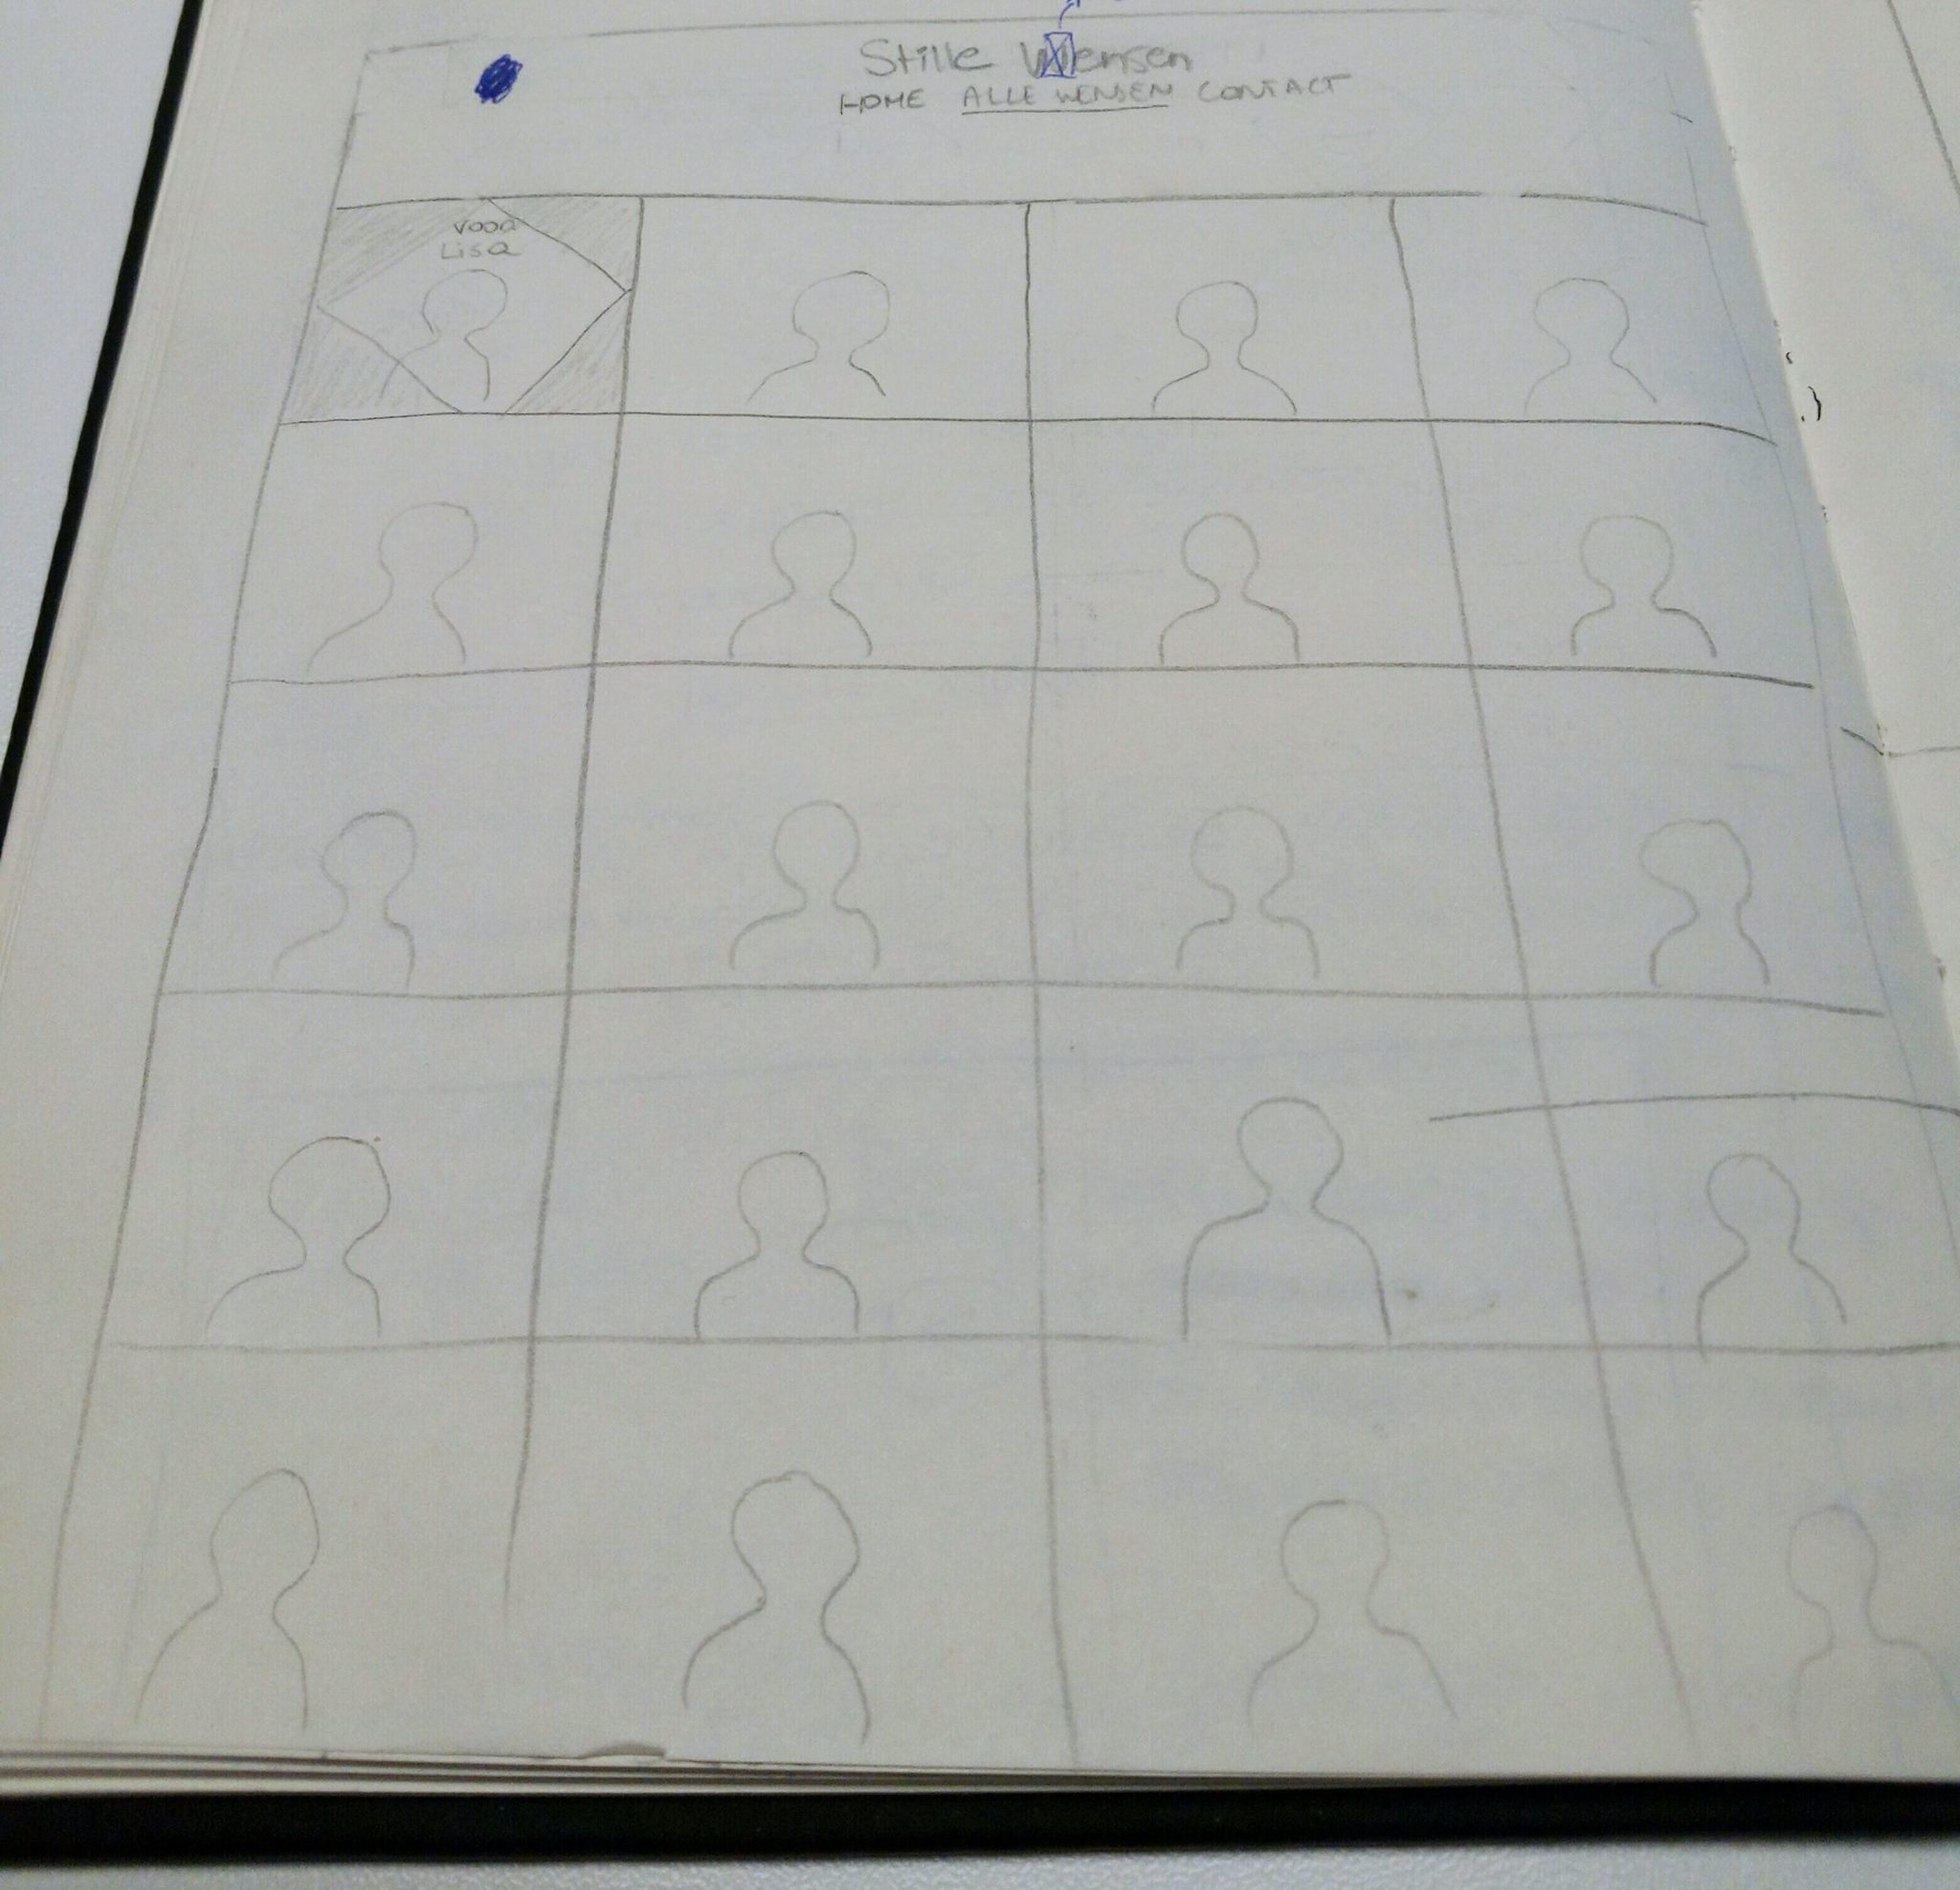 Stille Wensen
HOME ALLE WENSEN CONTACT
voor
Lisa